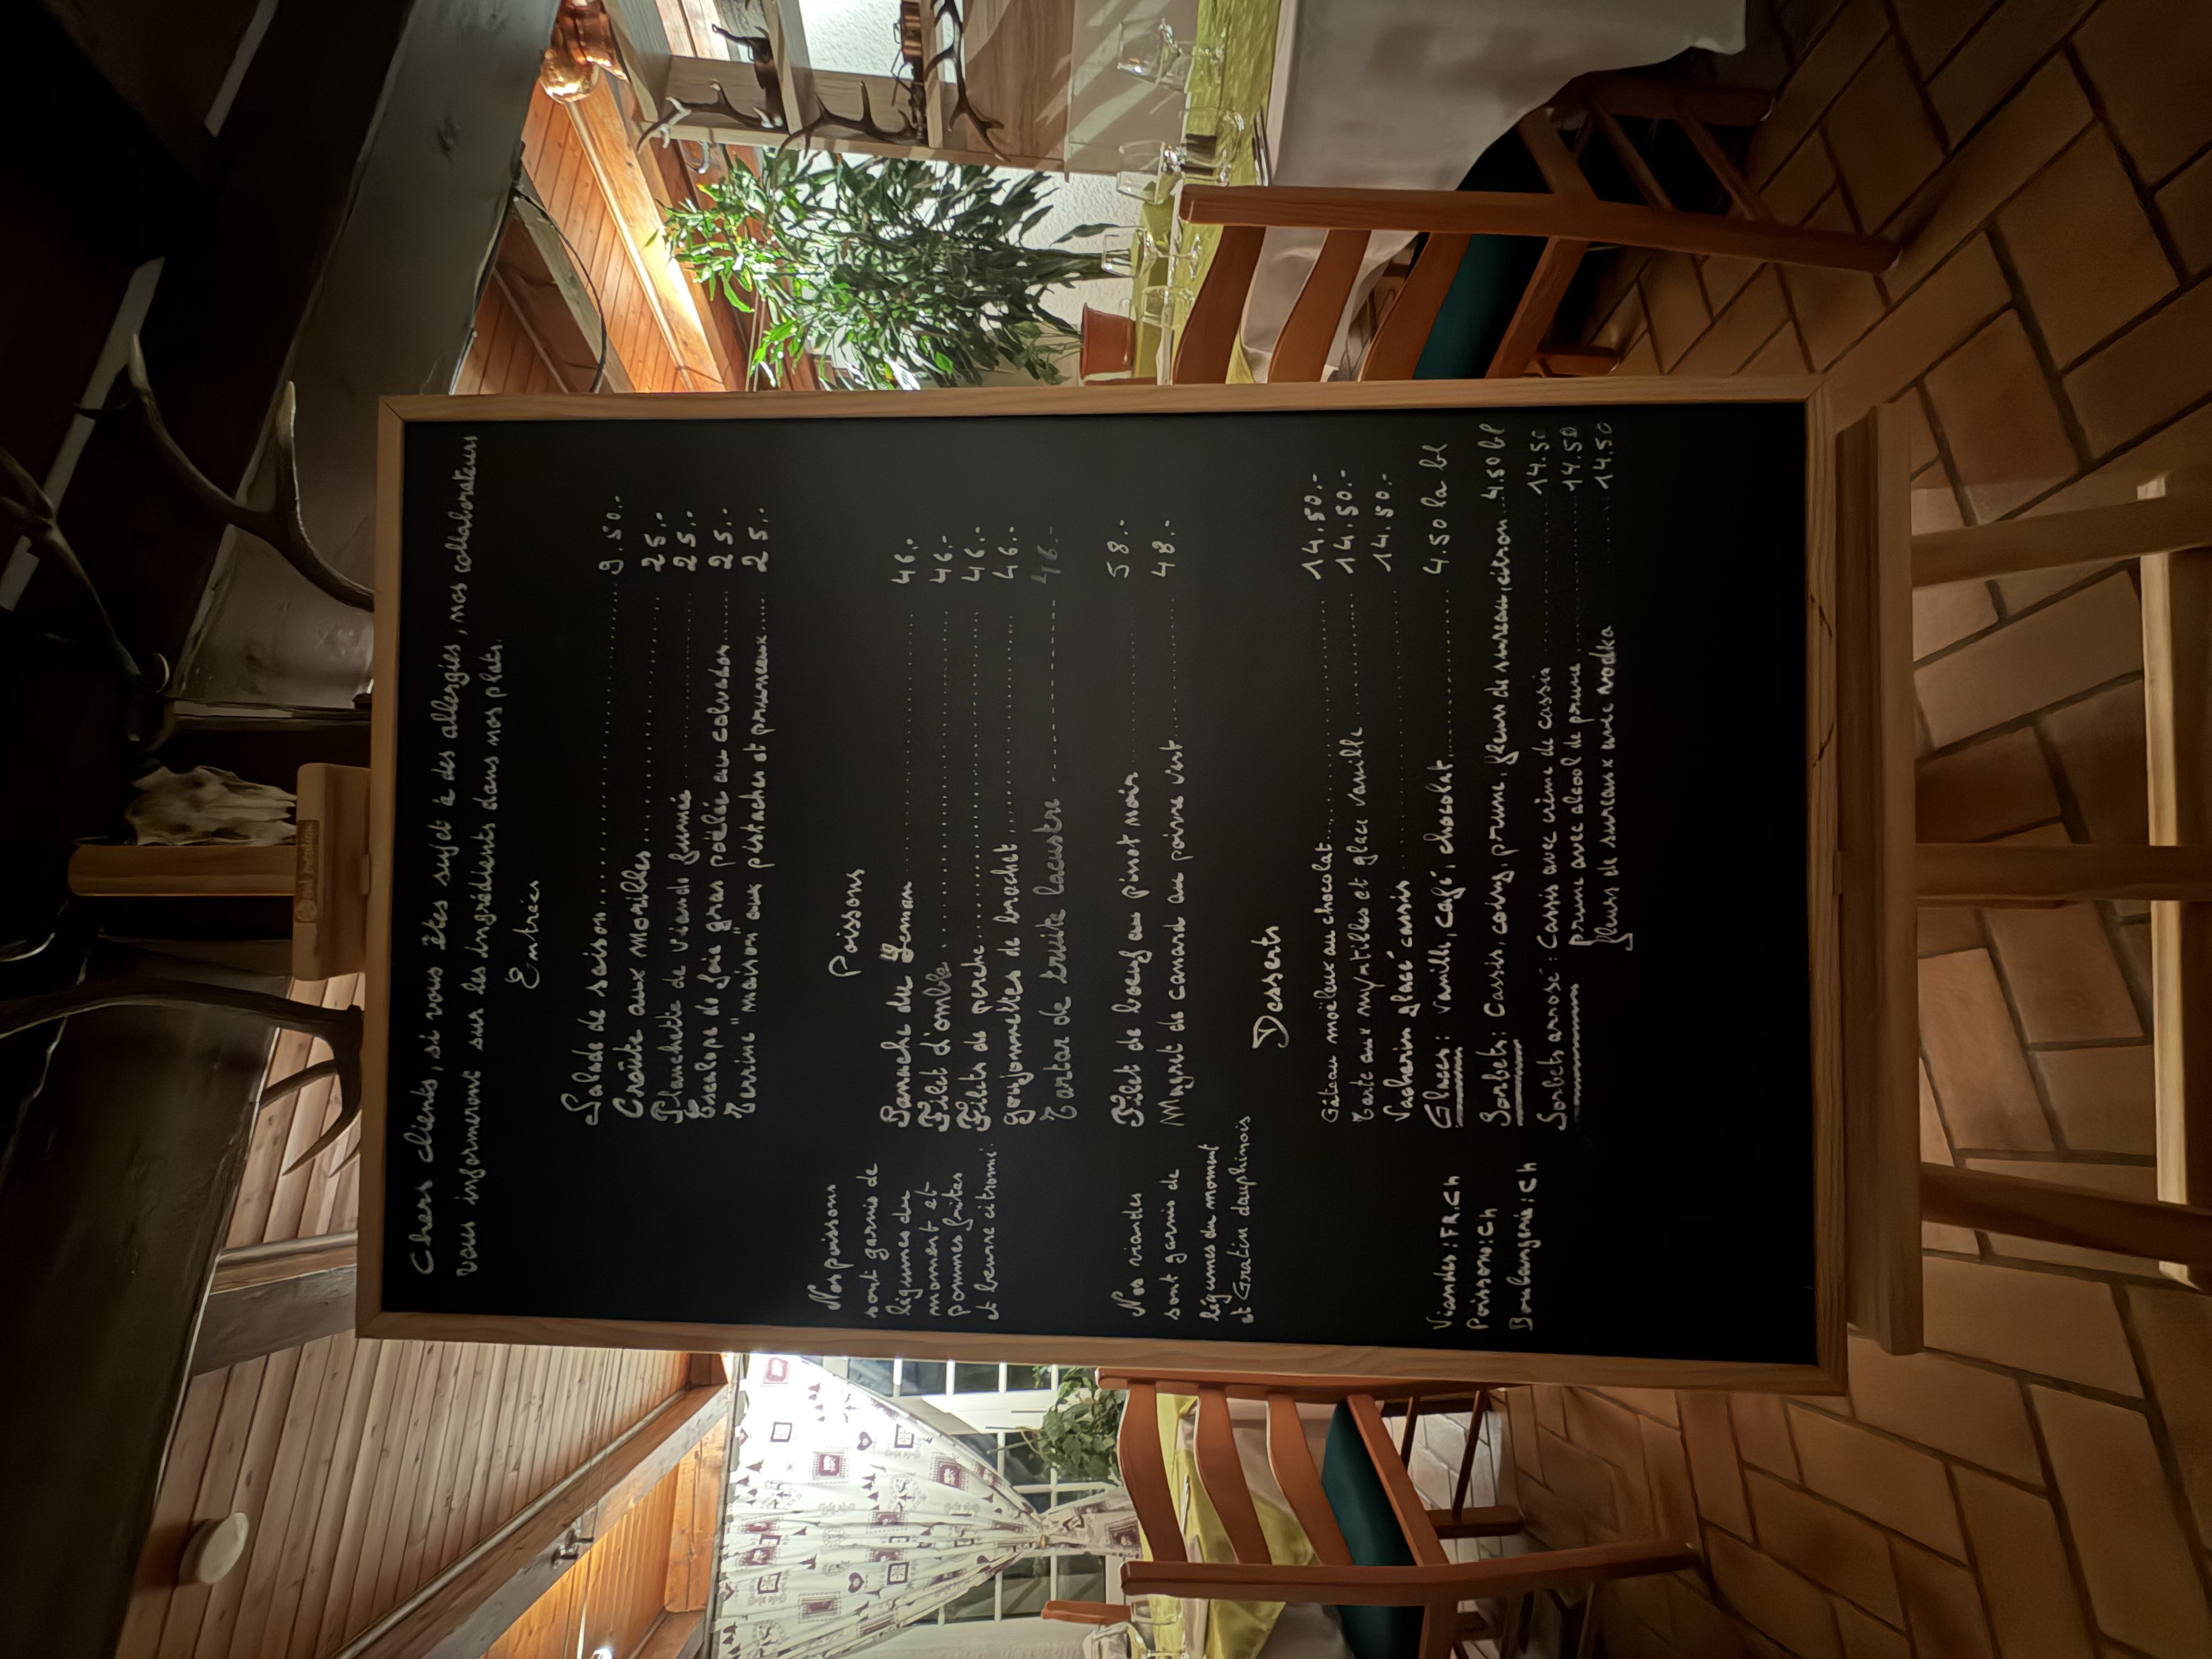 Chers clients, si vous êtes sujet à des allergies, nos collaborateurs
vous informeront sur les ingrédients dans nos plats.
Entrées
Salade de saison .......... 9.50.-
Croûte aux morilles .......... 25.-
Planchette de viande fumée .......... 25.-
Escalope de foie gras poêlée au calvados .......... 25.-
Terrine "maison" aux pistaches et pruneaux .......... 25.-
Poissons
Nos poissons
sont garnis de
légumes du
moment et
pommes frites
et beurre citronné.
Panaché du Léman .......... 46.-
Filet d'omble .......... 46.-
Filets de perche .......... 46.-
Goujonnettes de brochet .......... 46.-
Tartar de truite lacustre ---------- 46.-
Nos viandes
sont garnies de
légumes du moment
et Gratin dauphinois
Filet de boeuf au pinot noir .......... 58.-
Magret de canard au poivre vert .......... 48.-
Desserts
Gâteau moëleux au chocolat .......... 14.50.-
Tarte aux myrtilles et glace vanille .......... 14.50.-
Vacherin glacé cassis .......... 14.50.-
Glaces : Vanille, café, chocolat .......... 4.50 la bl
Sorbets : Cassis, coing, prune, fleurs de sureau, citron ... 4.50 bl
Sorbets arrosé : Cassis avec crème de cassis .......... 14.50
prune avec alcool de prune .......... 14.50
fleurs de sureaux avec vodka .......... 14.50
Viandes : FR.Ch
Poissons : Ch
Boulangerie : Ch